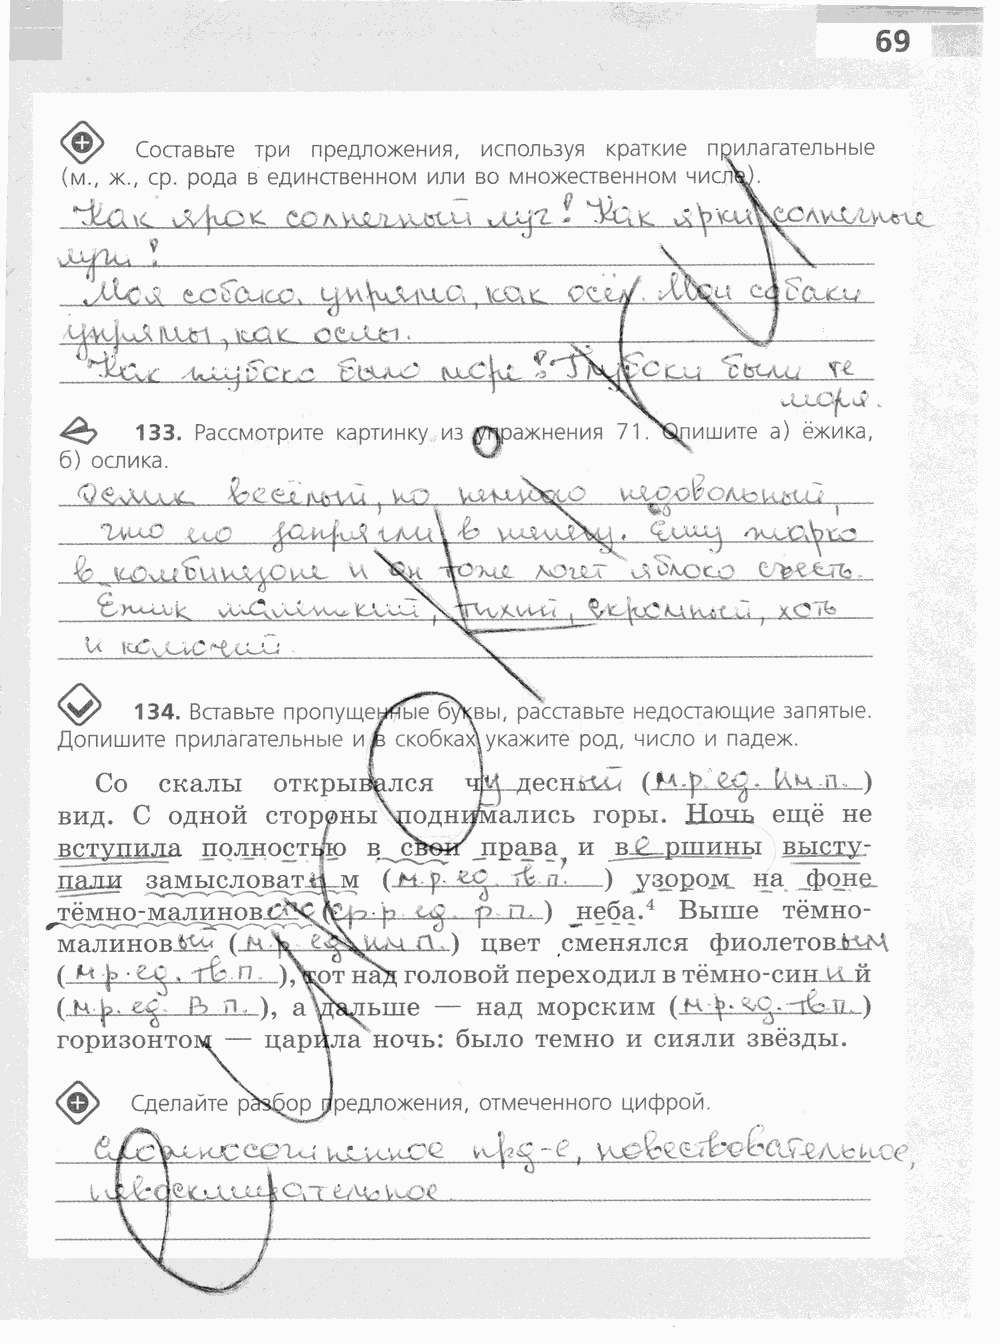 69
Составьте три предложения, используя краткие прилагательные
(м., ж., ср. рода в единственном или во множественном числе).
Как ярок солнечный луг! Как ярки солнечные
луги!
Моя собака упряма, как осёл. Мои собаки
упрямы, как ослы.
Как глубоко было море! Глубоки были те
моря.
133. Рассмотрите картинку из упражнения 71. Опишите а) ёжика,
б) ослика.
Ослик весёлый, но немного недовольный,
что его запрягли в телегу. Ему жарко
в комбинезоне и он тоже хочет яблоко съесть.
Ёжик маленький, тихий, скромный, хоть
и колючий.
134. Вставьте пропущенные буквы, расставьте недостающие запятые.
Допишите прилагательные и в скобках укажите род, число и падеж.
Со скалы открывался чудесный (м.р. ед. Им.п.)
вид. С одной стороны поднимались горы. Ночь ещё не
вступила полностью в свои права, и вершины высту-
пали замысловатым (м.р. ед. тв.п.) узором на фоне
тёмно-малинового (ср.р. ед. р.п.) неба.⁴ Выше тёмно-
малиновый (м.р. ед. им.п.) цвет сменялся фиолетовым
(м.р. ед. тв.п.), тот над головой переходил в тёмно-синий
(м.р. ед. В.п.), а дальше — над морским (м.р. ед. тв.п.)
горизонтом — царила ночь: было темно и сияли звёзды.
Сделайте разбор предложения, отмеченного цифрой.
Сложносочиненное прд-е, повествовательное,
невосклицательное.